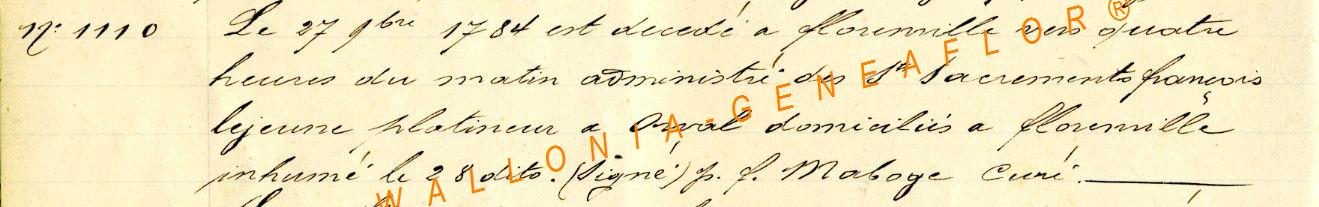 N° 1110 Le 27 9bre 1784 est decedé a florenville vers quatre
heures du matin administré des Sts Sacrements françois
lejeune platineur a Orval domiciliés a florenville
inhumé le 28 dito. (Signé) p. f. Maboge Curé.
WALLONIA-GENEAFLOR®